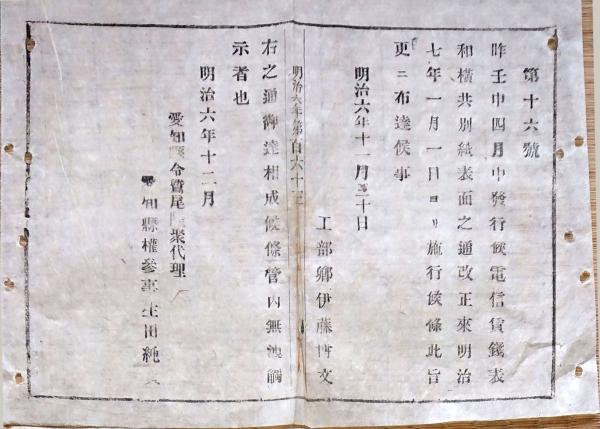 第十六號
昨壬申四月中發行候電信賃錢表
和橫共別紙表面之通改正來明治
七年一月一日ヨリ施行候條此旨
更ニ布達候事
明治六年十一月二十日
工部卿伊藤博文
明治六年第百六十三
右之通御達相成候條管內無洩觸
示者也
明治六年十二月
愛知 令鷲尾 聚代理
知縣權參事生田純